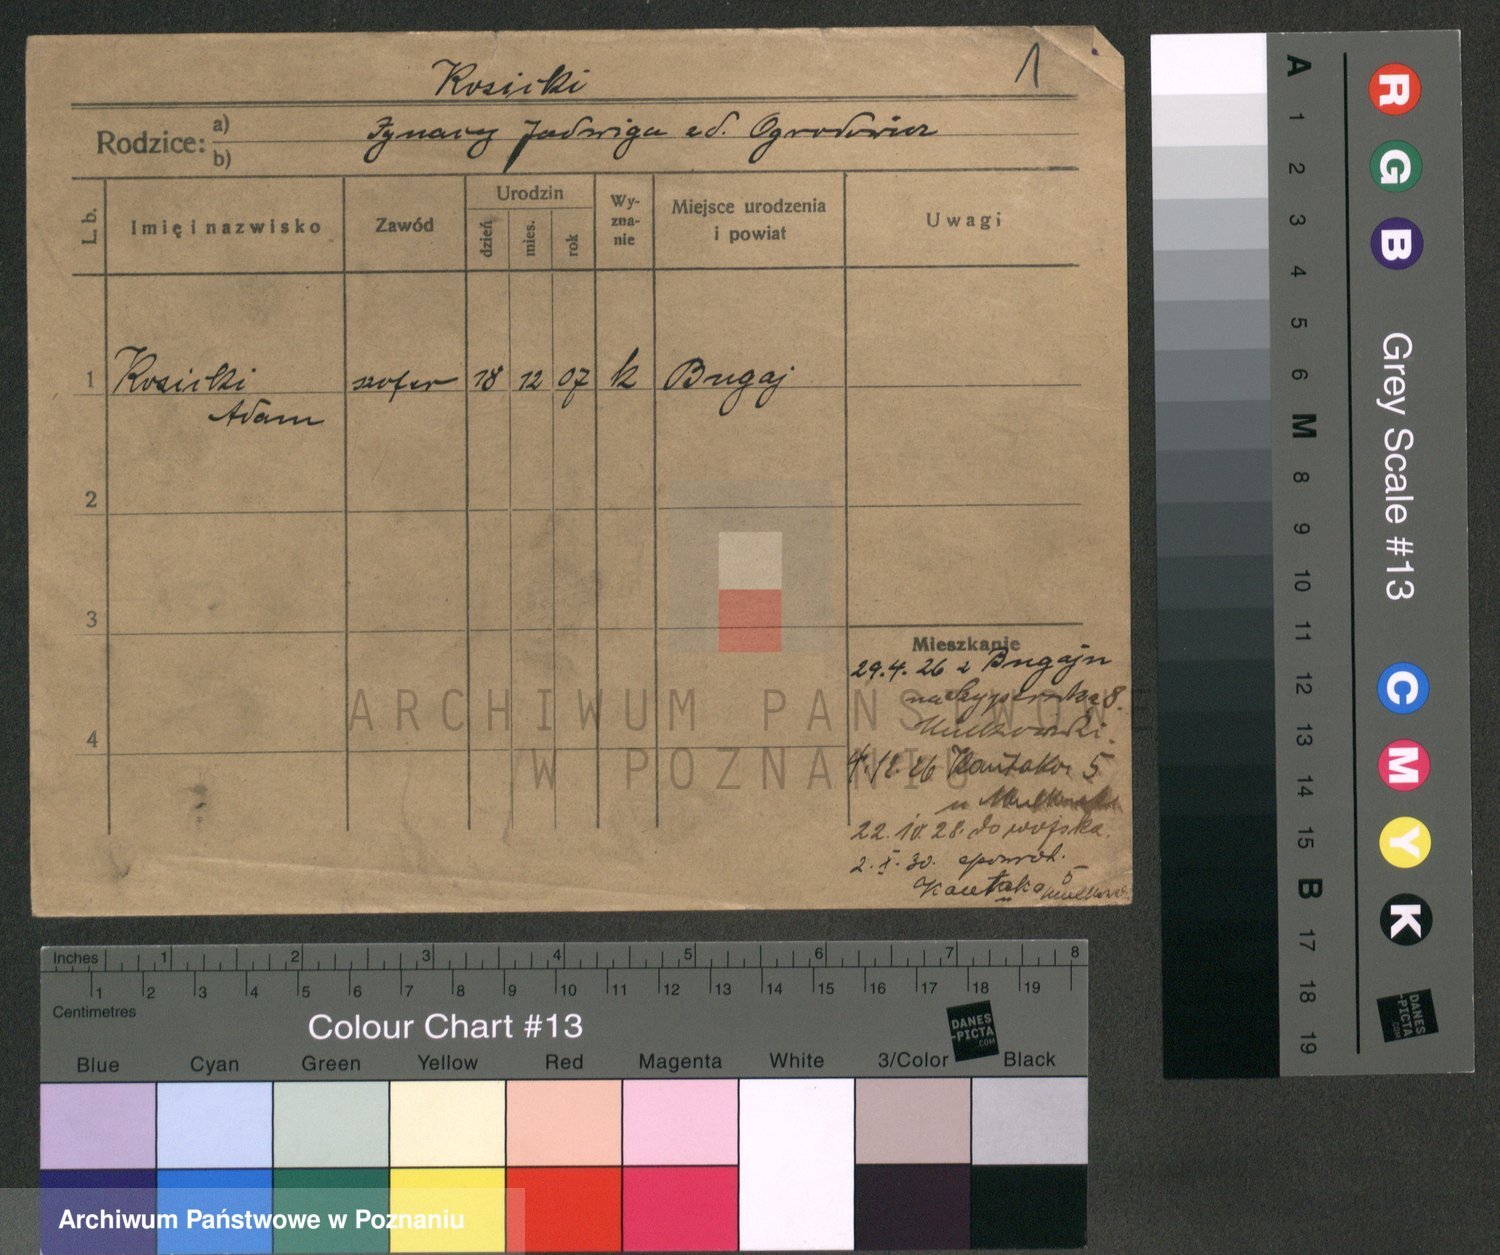 Kosicki
1
Rodzice: a)
b)
Ignacy Jadwiga zd. Ogrodowicz
L. b.
Imię i nazwisko
Zawód
Urodzin
dzień
mies.
rok
Wy-
zna-
nie
Miejsce urodzenia
i powiat
Uwagi
1 Kosicki szofer 18 12 07 k Bugaj
Adam
2
3
4
Mieszkanie
29.4.26 z Bugaju
na 8.
4.12.26 Kantaka 5
u
22.10.28. do wojska.
2.X.30. spowrot.
Kantaka 5
ARCHIWUM PAŃSTWOWE
W POZNANIU
Inches 1 2 3 4 5 6 7 8
1 2 3 4 5 6 7 8 9 10 11 12 13 14 15 16 17 18 19
Centimetres
Colour Chart #13
DANES
-PICTA
.COM
Blue Cyan Green Yellow Red Magenta White 3/Color Black
Archiwum Państwowe w Poznaniu
A 1 2 3 4 5 6 M 8 9 10 11 12 13 14 15 B 17 18 19
R G B
Grey Scale #13
C M Y K
DANES
-PICTA
.COM